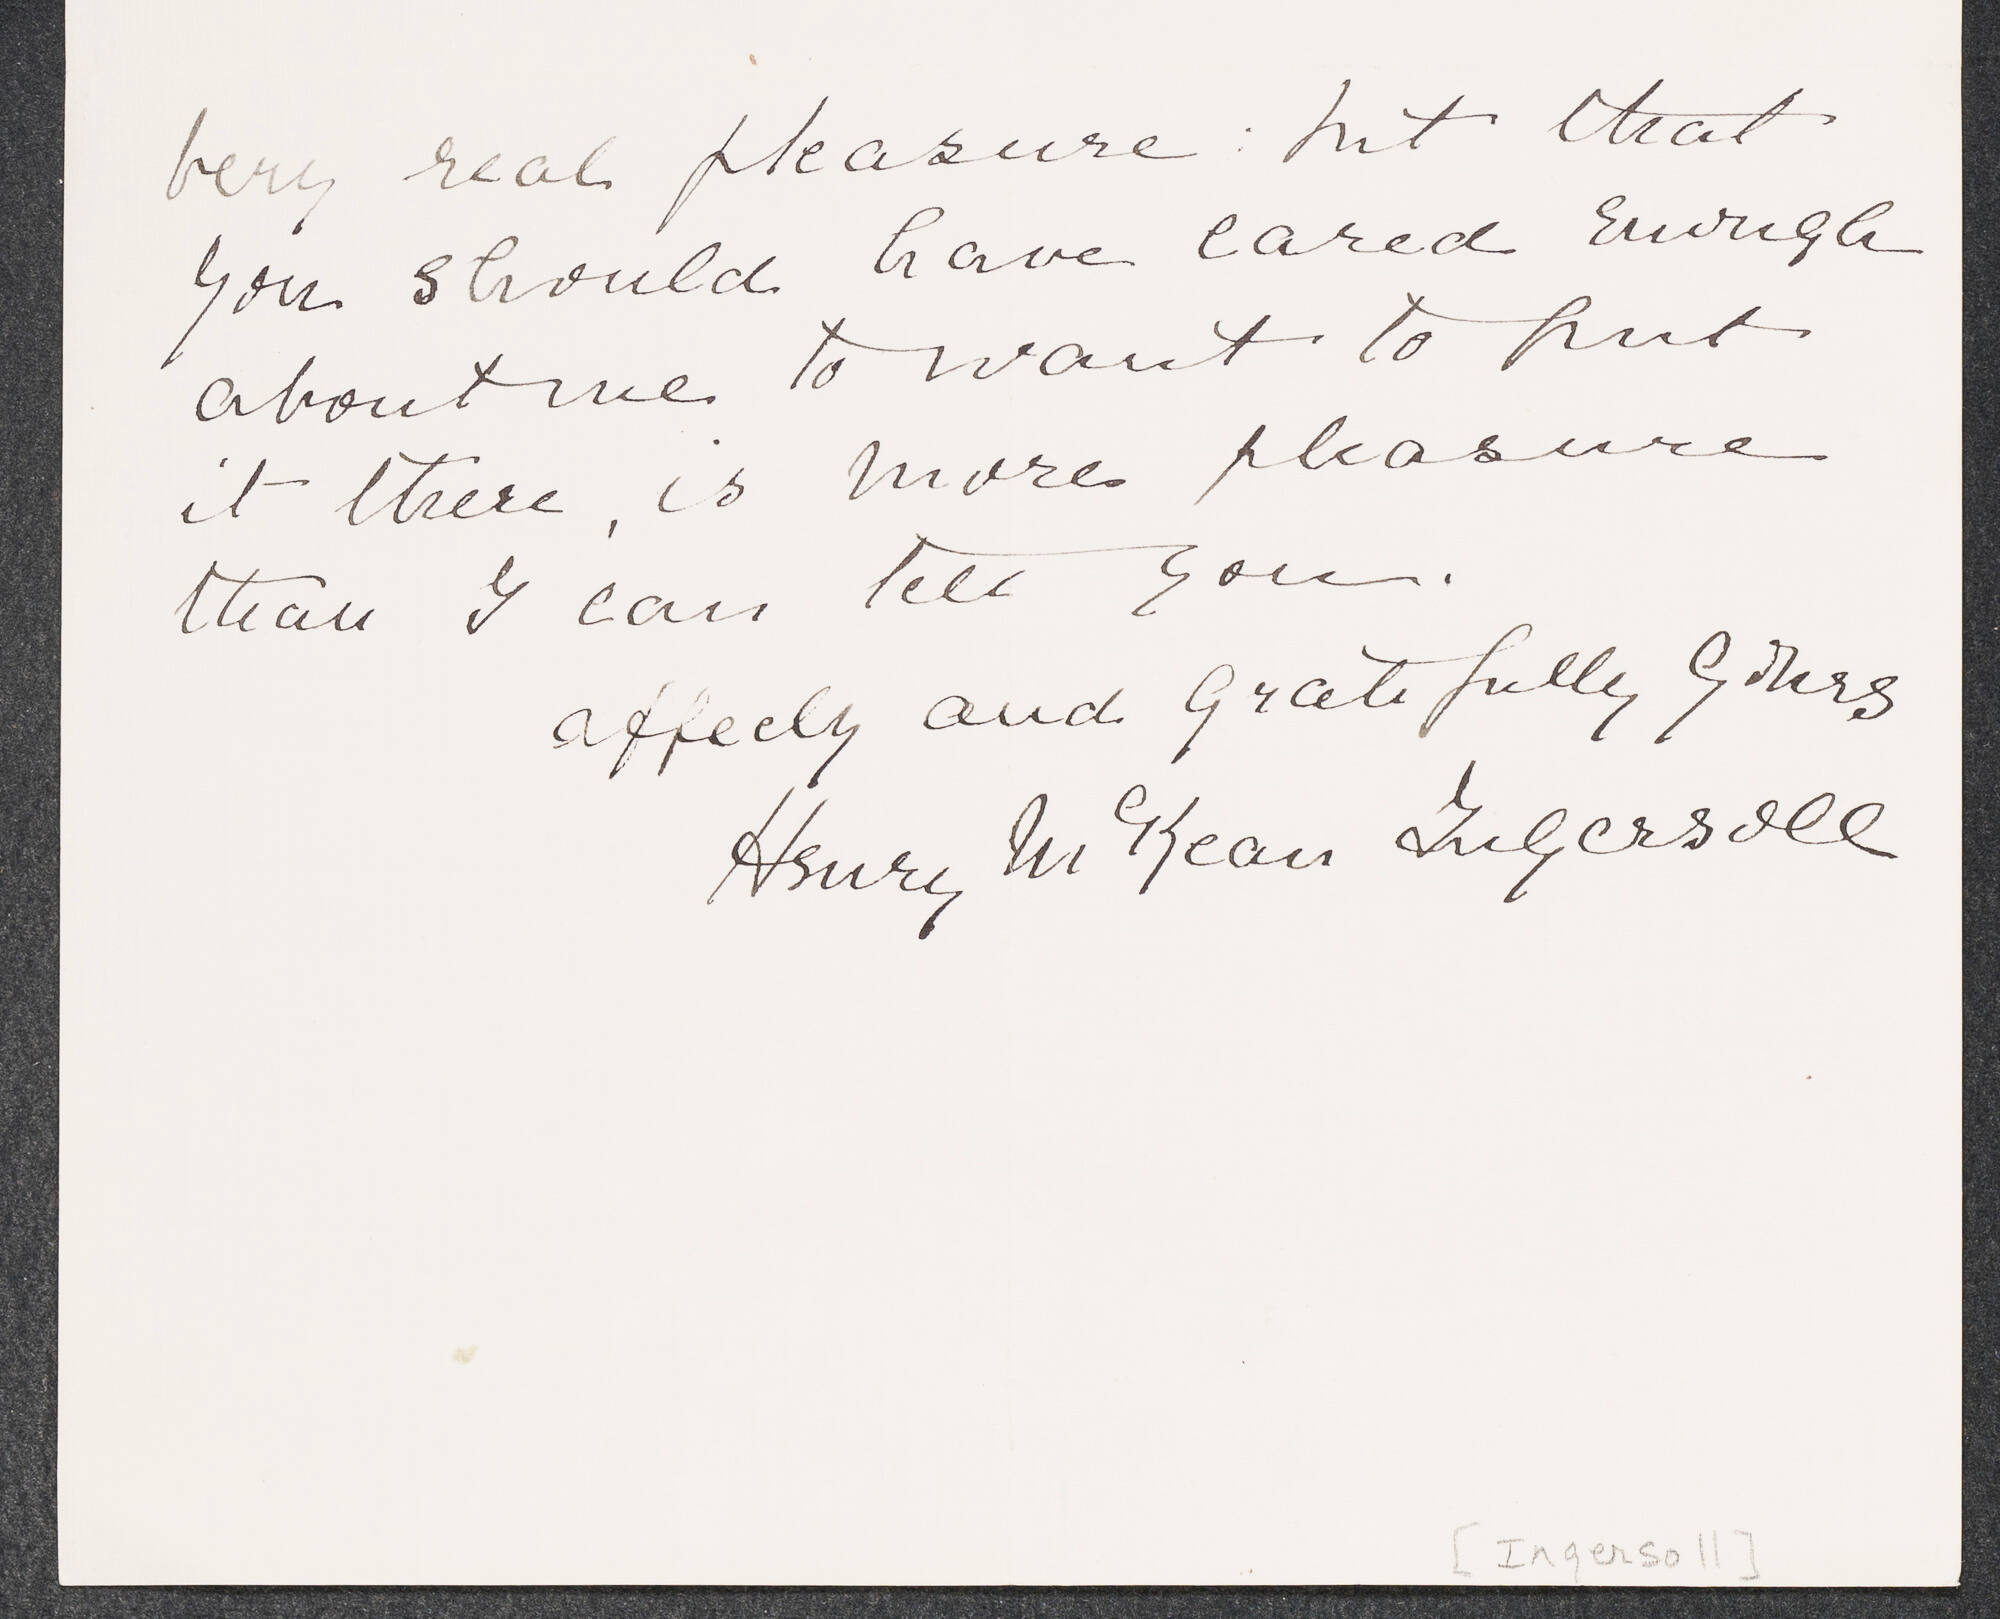 very real pleasure: but that
you should have cared enough
about me to want to put
it there, is more pleasure
than I can tell you.
affecly and gratefully yours
Henry McKean Ingersoll
[Ingersoll]